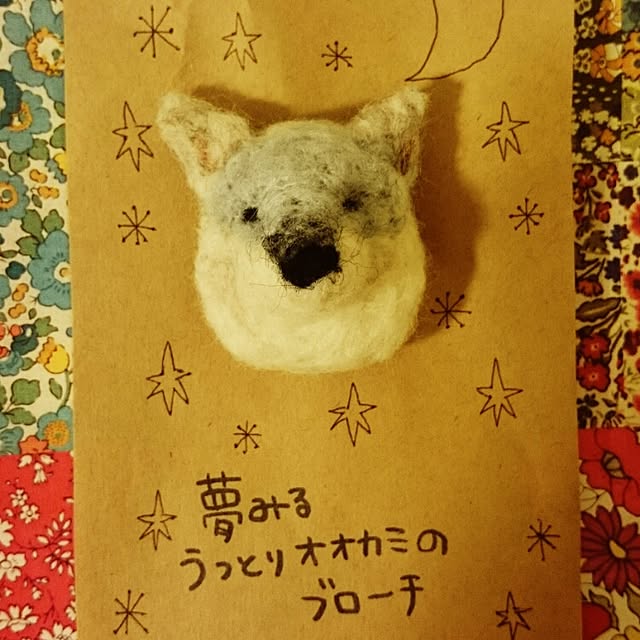 夢みる
うっとりオオカミの
ブローチ